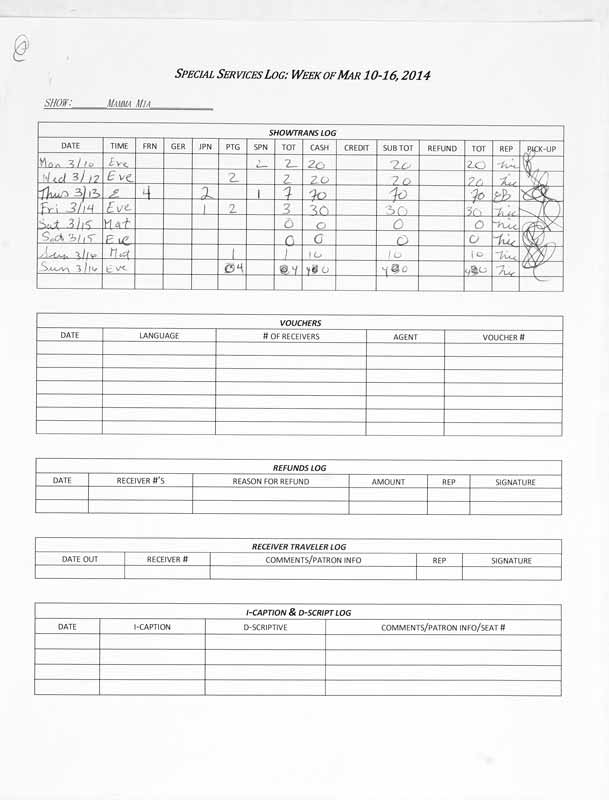 SPECIAL SERVICES LOG: WEEK OF MAR 10-16, 2014
SHOW: MAMMA MIA
SHOWTRANS LOG
DATE TIME FRN GER JPN PTG SPN TOT CASH CREDIT SUB TOT REFUND TOT REP PICK-UP
Mon 3/10 Eve 2 2 20 20 20
Wed 3/12 Eve 2 2 20 20 20
Thus 3/13 E 4 2 1 7 70 70 70
Fri 3/14 Eve 1 2 3 30 30 30
Sat 3/15 Mat 0 0 0 0
Sat 3/15 Eve 0 0 0 0
Sun 3/16 Mat 1 1 10 10 10
Sun 3/16 Eve 4 4 40 40 40
VOUCHERS
DATE LANGUAGE # OF RECEIVERS AGENT VOUCHER #
REFUNDS LOG
DATE RECEIVER #'S REASON FOR REFUND AMOUNT REP SIGNATURE
RECEIVER TRAVELER LOG
DATE OUT RECEIVER # COMMENTS/PATRON INFO REP SIGNATURE
I-CAPTION & D-SCRIPT LOG
DATE I-CAPTION D-SCRIPTIVE COMMENTS/PATRON INFO/SEAT #